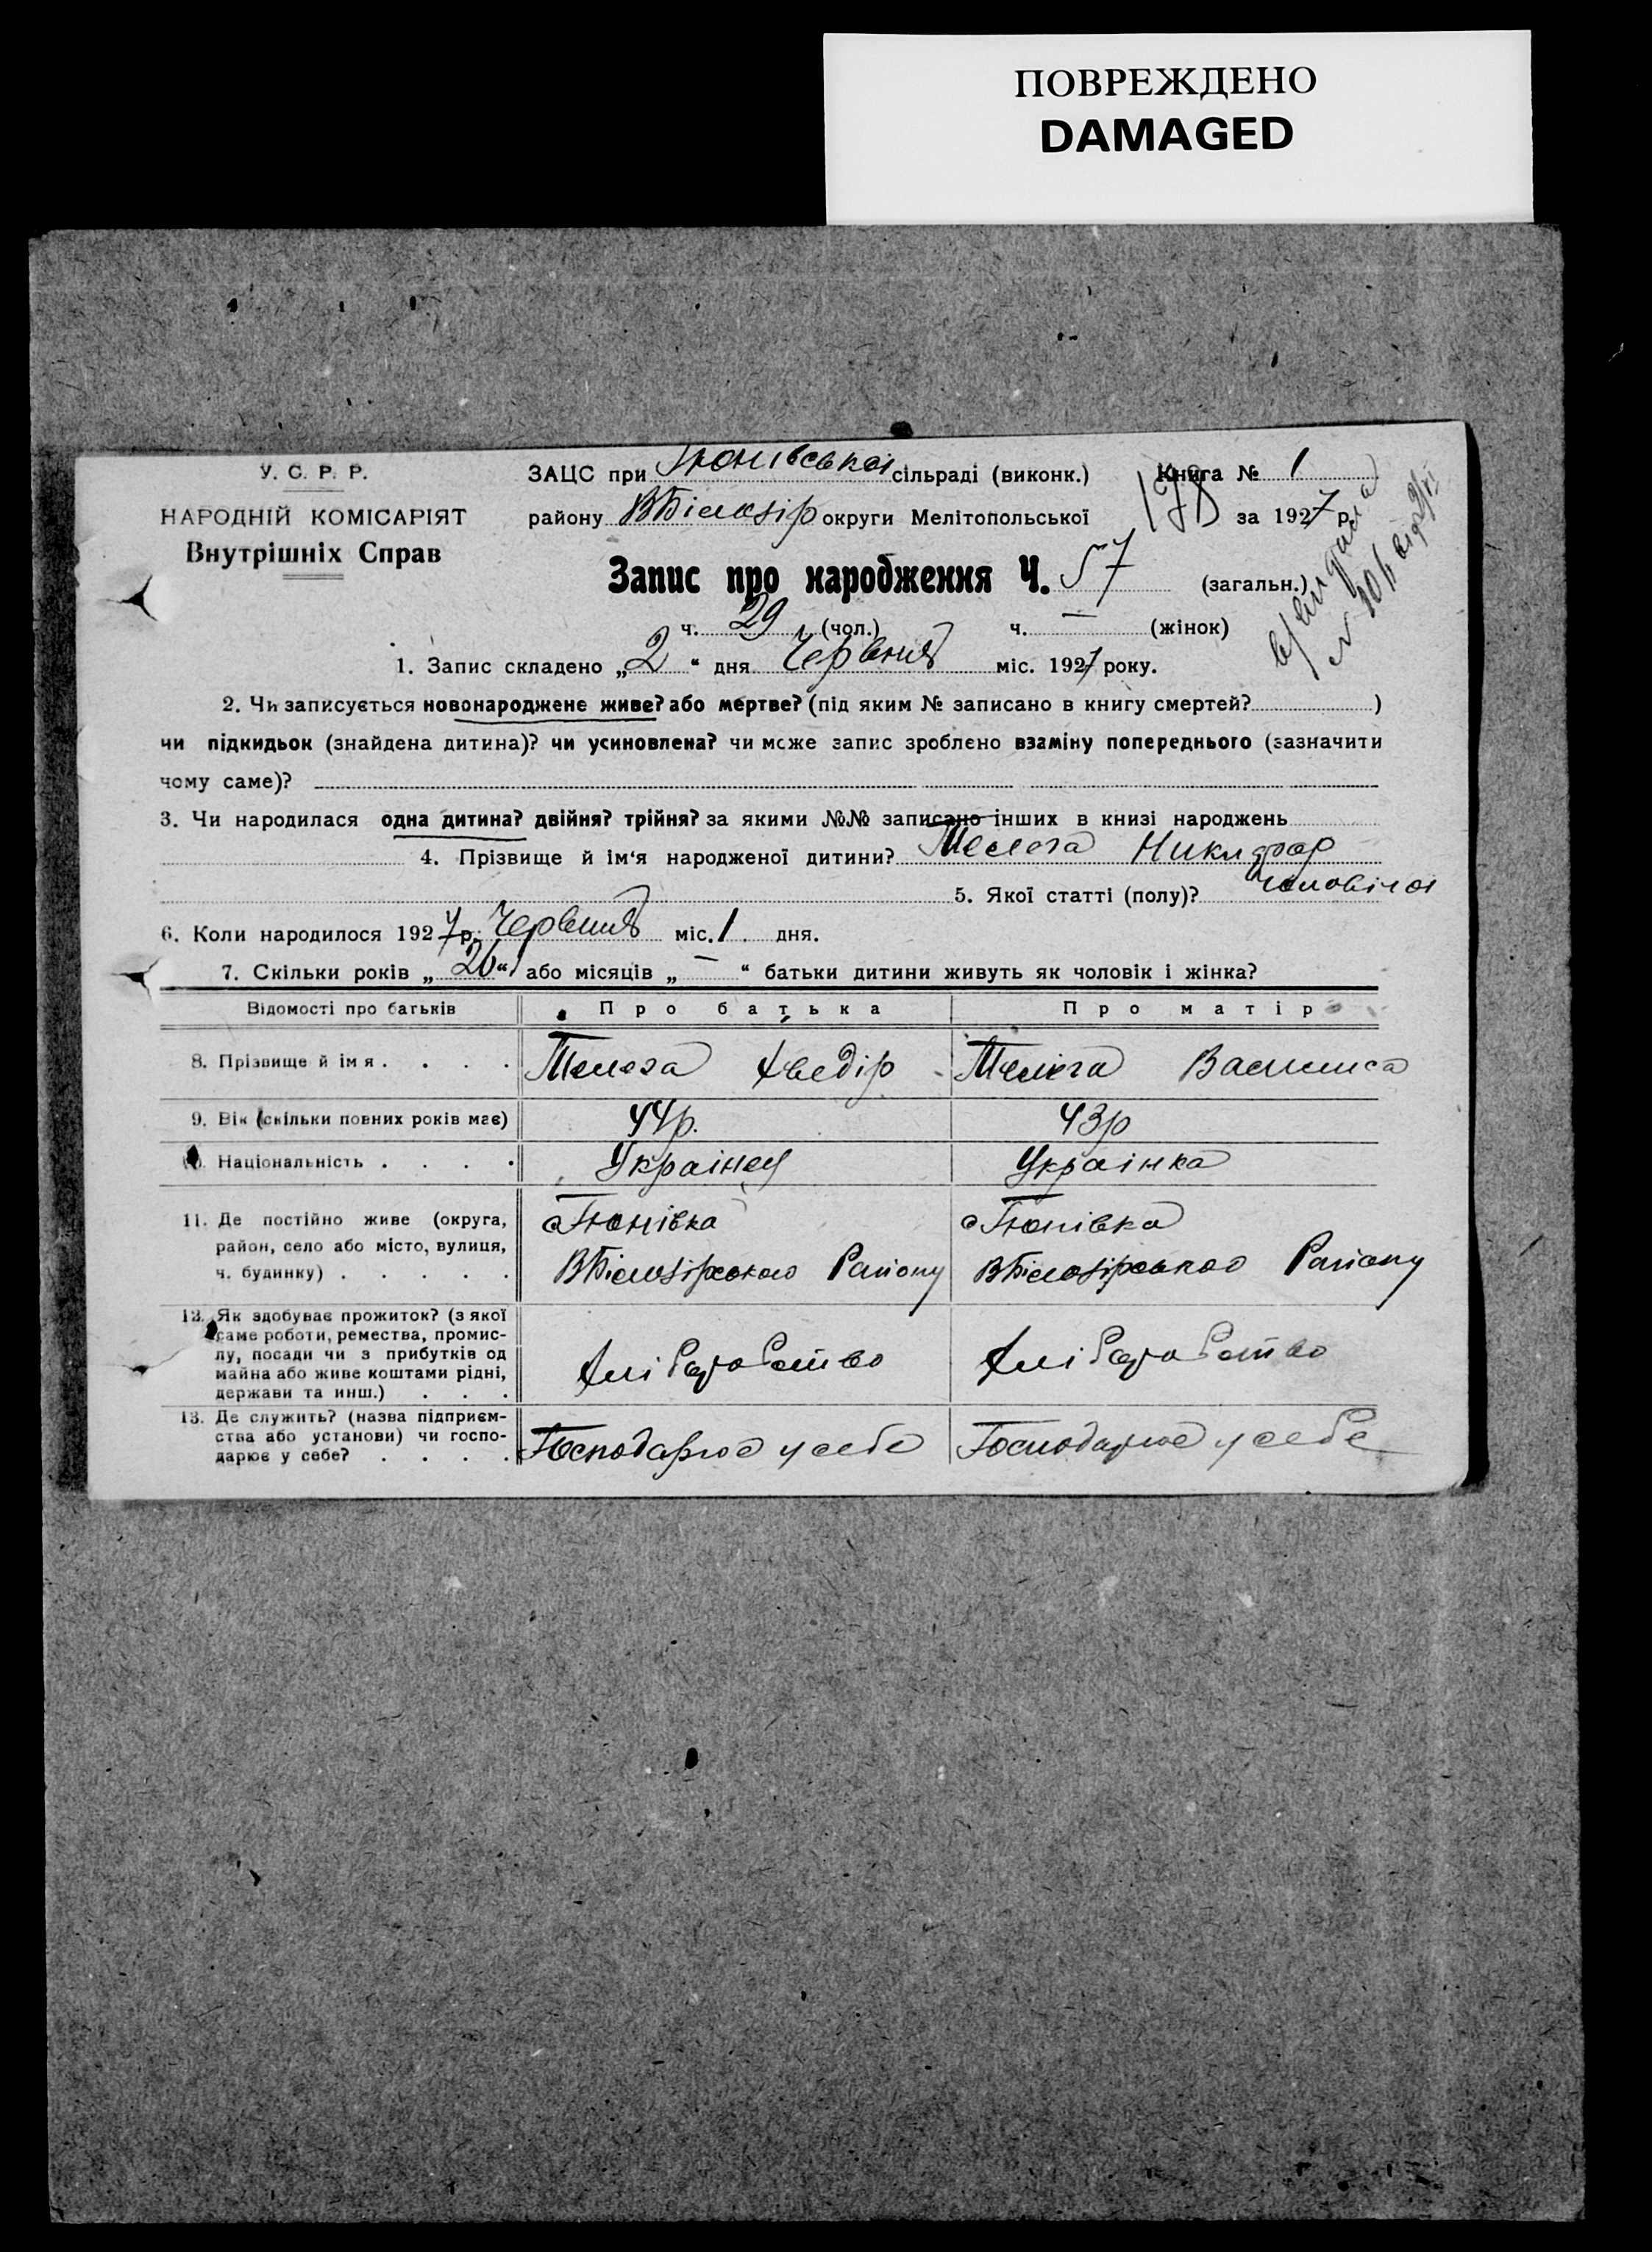 ПОВРЕЖДЕНО
DAMAGED
У. С. Р. Р.
НАРОДНІЙ КОМІСАРІЯТ
Внутрішніх Справ
ЗАЦС при Тюнівської сільраді (виконк.) Книга № 1
району ВБілозір округи Мелітопольської 178 за 1927 р.
Запис про народження Ч. 57 (загальн.)
ч. 29 (чол.) ч. — (жінок)
1. Запис складено „2“ дня Червня міс. 1927 року.
2. Чи записується новонароджене живе? або мертве? (під яким № записано в книгу смертей? )
чи підкидьок (знайдена дитина)? чи усиновлена? чи може запис зроблено взаміну попереднього (зазначити
чому саме)?
3. Чи народилася одна дитина? двійня? трійня? за якими №№ записано інших в книзі народжень
4. Прізвище й ім'я народженої дитини? Телега Никифор
5. Якої статті (полу)? чоловічої
6. Коли народилося 1927 р. Червня міс. 1 дня.
7. Скільки років „26“ або місяців „—“ батьки дитини живуть як чоловік і жінка?
Відомості про батьків Про батька Про матір
8. Прізвище й імя . . . . Телега Хведір Телега Василиса
9. Вік (скільки повних років має) 44р. 43р
Національність . . . . Українец Українка
11. Де постійно живе (округа, район, село або місто, вулиця, ч. будинку) . . . . . с Тюнівка с Тюнівка
ВБілозірського Району ВБілозірського Району
12. Як здобуває прожиток? (з якої
саме роботи, ремества, промис-
лу, посади чи з прибутків од
майна або живе коштами рідні,
держави та инш.) . . . Хліборобство Хліборобство
13. Де служить? (назва підприєм-
ства або установи) чи госпо-
дарює у себе? . . . . Господарює у себе Господарює у себе